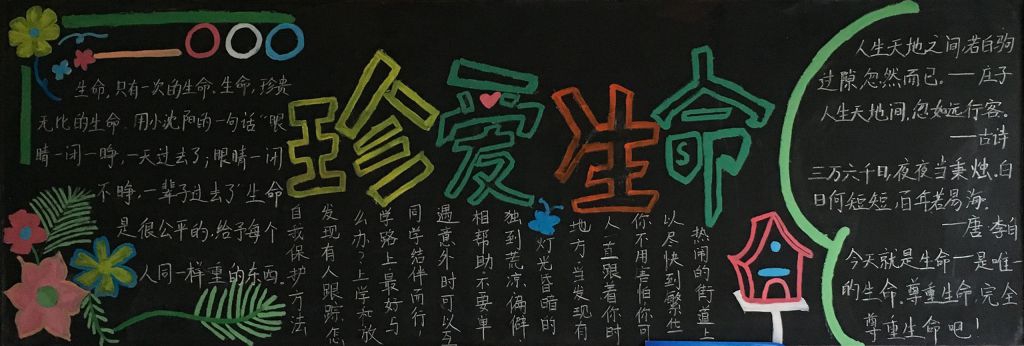 珍爱生命
生命,只有一次的生命、生命,珍贵
无比的生命.用小沈阳的一句话"眼
睛一闭一睁,一天过去了;眼睛一闭
不睁,一辈子过去了"生命
是很公平的,给予每个
人同一样重的东西。
自我保护方法
发现有人跟踪怎
么办?上学和放
学路上最好与
同学结伴而行
遇意外时可以互
相帮助不要单
独到荒凉偏僻,
灯光昏暗的
地方,当发现有
人一直跟着你时
你不用害怕你可
以尽快到繁华
热闹的街道上
人生天地之间,若白驹
过隙,忽然而已。——庄子
人生天地间,忽如远行客。
——古诗
三万六千日,夜夜当秉烛.白
日何短短,百年苦易满。
——唐 李白
今天就是生命—是唯一
的生命.尊重生命,完全
尊重生命吧!